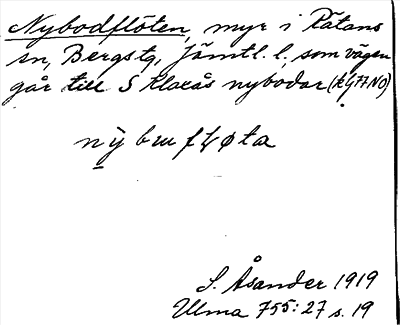 Nybodflöten, myr i Rätans
sn, Bergs tg, Jämtl. l., som vägen
går till S Klaxås nybodar
ny̱ bu fløta
S. Åsander 1919
Ulma 755:27 s. 19